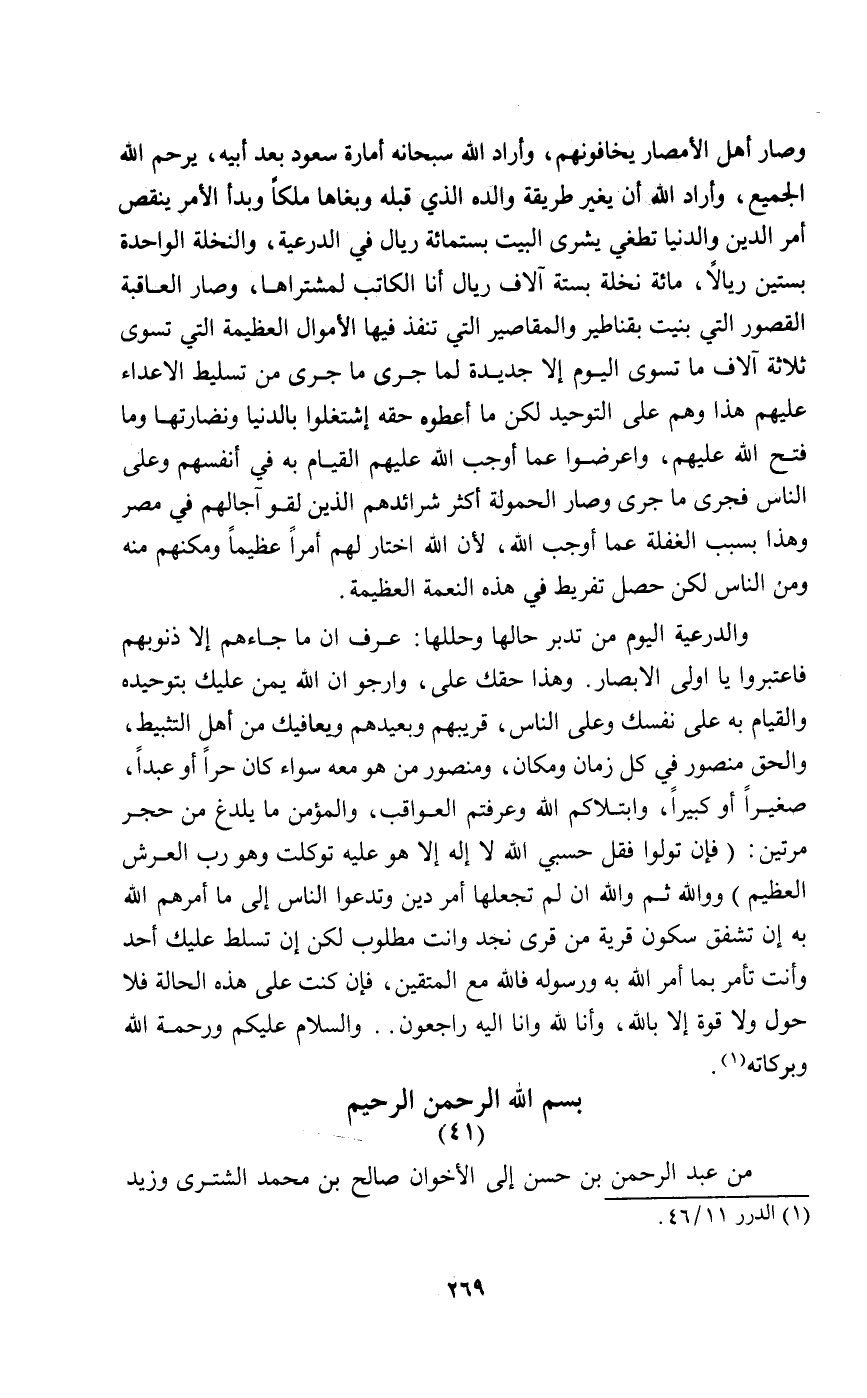 وصار أهل الأمصار يخافونهم، وأراد الله سبحانه أمارة سعود بعد أبيه، يرحم الله
الجميع، وأراد الله أن يغير طريقة والده الذي قبله وبغاها ملكاً وبدأ الأمر ينقص
أمر الدين والدنيا تطغي يشرى البيت بستمائة ريال في الدرعية، والنخلة الواحدة
بستين ريالاً، مائة نخلة بستة آلاف ريال أنا الكاتب لمشتراها، وصار العاقبة
القصور التي بنيت بقناطير والمقاصير التي تنفذ فيها الأموال العظيمة التي تسوى
ثلاثة آلاف ما تسوى اليوم إلا جديدة لما جرى ما جرى من تسليط الاعداء
عليهم هذا وهم على التوحيد لكن ما أعطوه حقه إشتغلوا بالدنيا ونضارتها وما
فتح الله عليهم، واعرضوا عما أوجب الله عليهم القيام به في أنفسهم وعلى
الناس فجرى ما جرى وصار الحمولة أكثر شرائدهم الذين لقو آجالهم في مصر
وهذا بسبب الغفلة عما أوجب الله، لأن الله اختار لهم أمراً عظيماً ومكنهم منه
ومن الناس لكن حصل تفريط في هذه النعمة العظيمة.
والدرعية اليوم من تدبر حالها وحللها: عرف ان ما جاءهم إلا ذنوبهم
فاعتبروا يا اولى الابصار. وهذا حقك على، وارجو ان الله يمن عليك بتوحيده
والقيام به على نفسك وعلى الناس، قريبهم وبعيدهم ويعافيك من أهل التثبيط،
والحق منصور في كل زمان ومكان، ومنصور من هو معه سواء كان حراً أو عبداً،
صغيراً أو كبيراً، وابتلاكم الله وعرفتم العواقب، والمؤمن ما يلدغ من حجر
مرتين: ( فإن تولوا فقل حسبي الله لا إله إلا هو عليه توكلت وهو رب العرش
العظيم ) ووالله ثم والله ان لم تجعلها أمر دين وتدعوا الناس إلى ما أمرهم الله
به إن تشفق سكون قرية من قرى نجد وانت مطلوب لكن إن تسلط عليك أحد
وأنت تأمر بما أمر الله به ورسوله فالله مع المتقين، فإن كنت على هذه الحالة فلا
حول ولا قوة إلا بالله، وأنا لله وانا اليه راجعون.. والسلام عليكم ورحمة الله
وبركاته(١).
بسم الله الرحمن الرحيم
(٤١)
من عبد الرحمن بن حسن إلى الأخوان صالح بن محمد الشترى وزيد
(١) الدرر ٤٦/١١.
٢٦٩